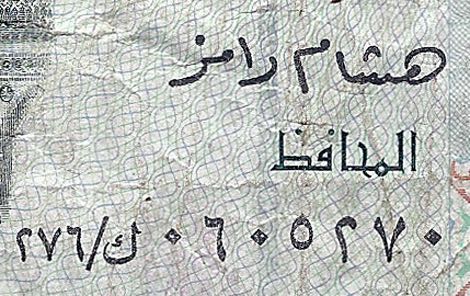 هشام رامز
المحافظ
٠٦٠٥٢٧٠ ك/٢٧٦